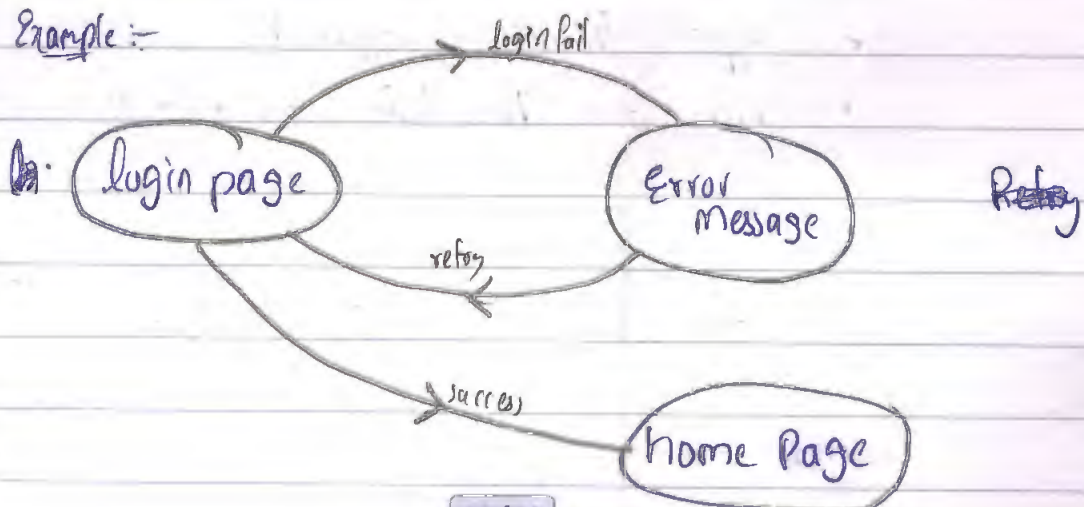 Example :-
login fail
login page
Error
Message
retry
success
home Page